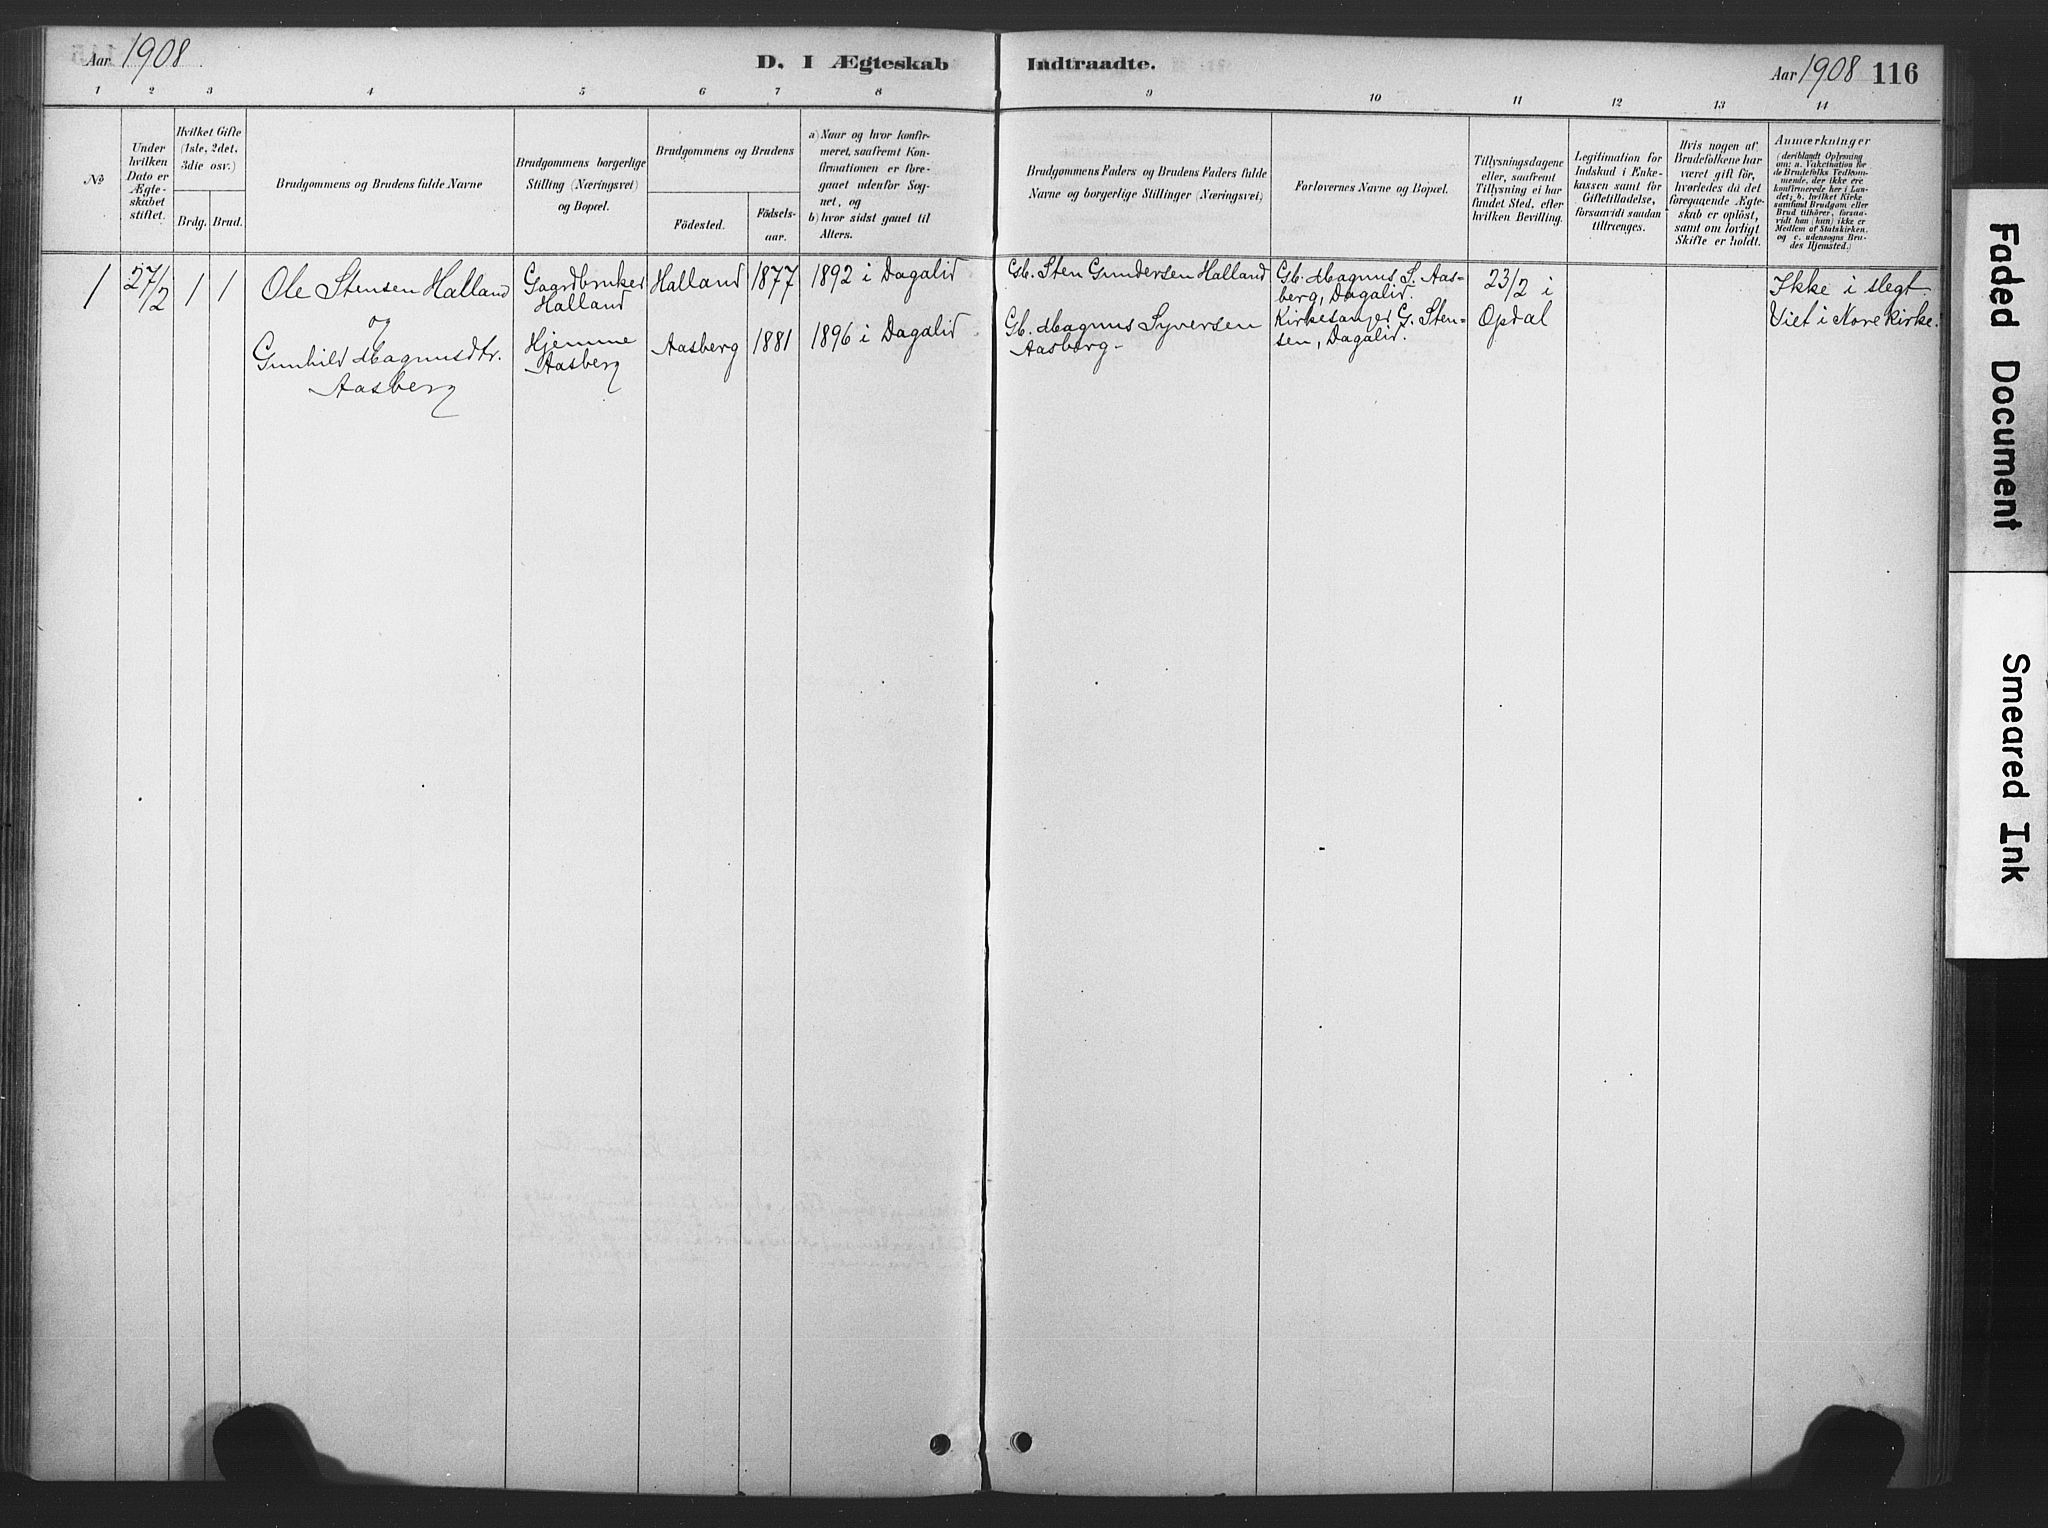 Aar 1908
D. I Ægteskab Indtraadte.
Aar 1908 116
1 2 3 4 5 6 7 8 9 10 11 12 13 14
No
Under
hvilken
Dato er
Ægte-
skabet
stiftet.
Hvilket Gifte
(1ste, 2det,
3die osv.)
Brdg. Brud.
Brudgommens og Brudens fulde Navne
Brudgommens borgerlige
Stilling (Næringsvei)
og Bopæl.
Brudgommens og Brudens
Födested.
Födsels-
aar.
a) Naar og hvor konfir-
meret, saafremt Kon-
firmationen er fore-
gaaet udenfor Sog-
net, og
b) hvor sidst gaaet til
Alters.
Brudgommens Faders og Brudens Faders fulde
Navne og borgerlige Stillinger (Næringsvei)
Forlovernes Navne og Bopæl.
Tillysningsdagene
eller, saafremt
Tillysning ei har
fundet Sted, efter
hvilken Bevilling.
Legitimation for
Indskud i Enke-
kassen samt for
Giftetilladelse,
forsaavidt saadan
tiltrænges.
Hvis nogen af
Brudefolkene har
været gift för,
hvorledes da det
foregaaende Ægte-
skab er oplöst,
samt om lovligt
Skifte er holdt.
Anmærkninger
(deriblandt Oplysning
om: a. Vakcination for
de Brudefolks Vedkom-
mende, der ikke ere
konfirmerede her i Lan-
det; b. hvilket Kirke-
samfund Brudgom eller
Brud tilhörer, forsaa-
vidt han (hun) ikke er
Medlem af Statskirken,
og c. udensogns Bru-
des Hjemsted.)
1
27/2
1
1
Ole Stensen Halland
og
Gunhild Magnusdtr.
Aasberg
Gaardbruker
Halland
Hjemme
Aasberg
Halland
Aasberg
1877
1881
1892 i Dagalid
1896 i Dagalid
Gb. Sten Gundersen Halland
Gb. Magnus Syversen
Aasberg-
Gb. Magnus S. Aas-
berg, Dagalid.
Kirkesanger G. Sten-
sen, Dagalid.
23/2 i
Opdal
Ikke i slegt.
Viet i Nore kirke.
Faded Document
Smeared Ink